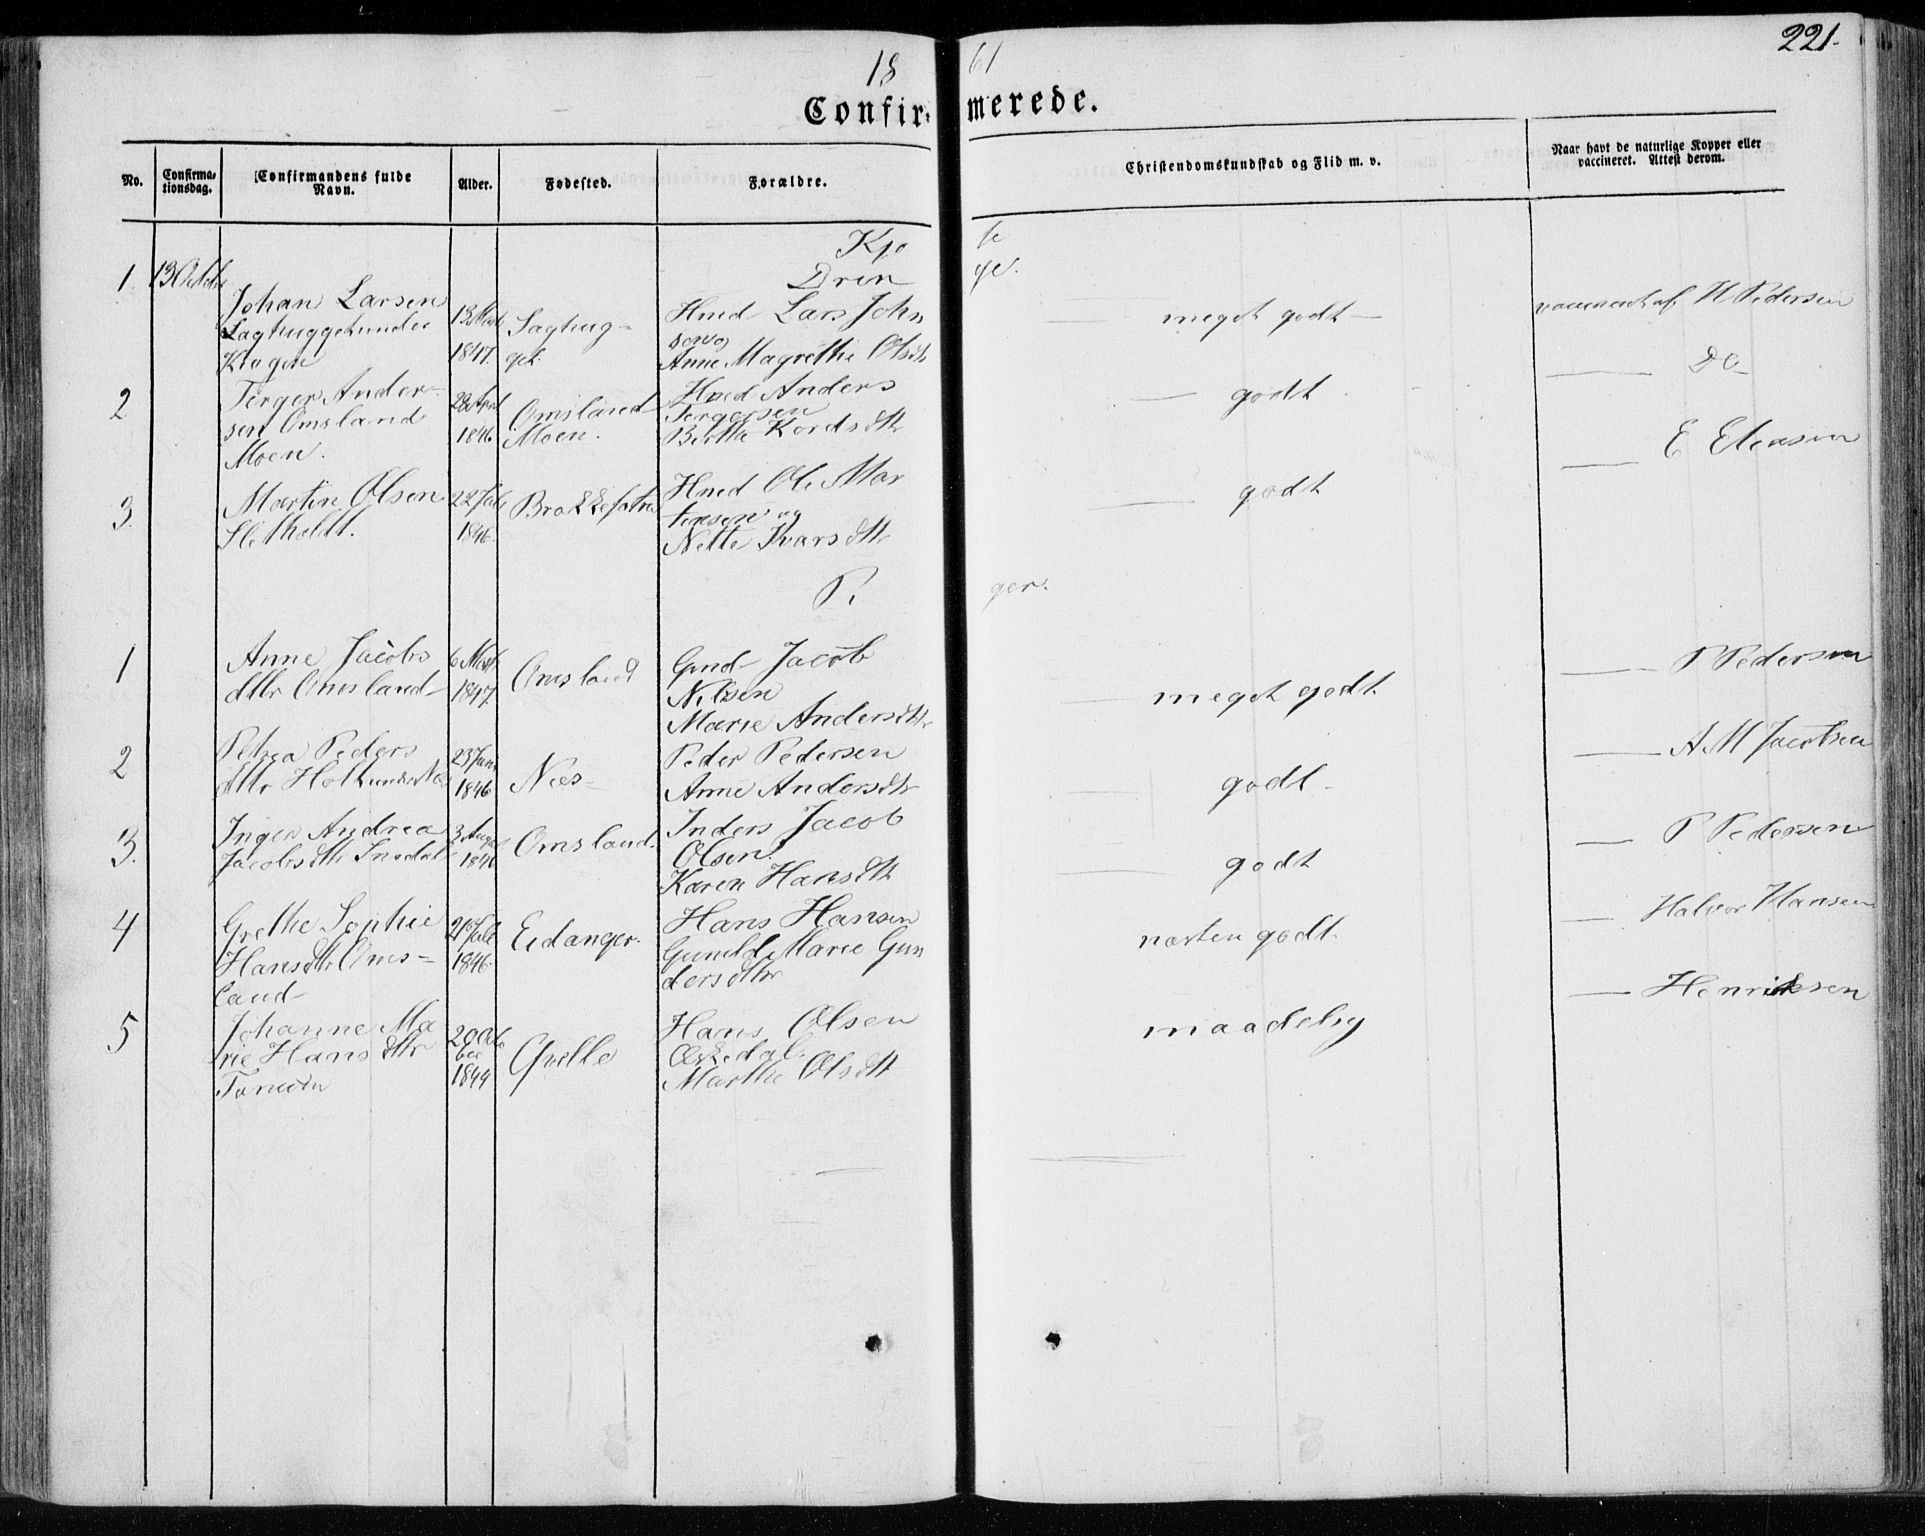 221.
18 61
Confir- merede.
No.
Confirma-
tionsdag.
Confirmandens fulde
Navn.
Alder.
Fødested.
Forældre.
Christendomskundskab og Flid m. v.
Naar havt de naturlige Kopper eller
vaccineret. Attest derom.
Kjo se
Dren ge.
1. 13 Octobr
Johan Larsen
under
Kragen
13 Marts
1847.
Saghug-
get
Hmd Lars John
sen og
Anne Magrethe Olsdtr
meget godt
vaccineret af H Pedersen
2
Terger Ander-
sen Omsland
Moen.
28 April
1846
Omsland
Moen.
Hmd Anders
Tergersen
Berthe Kordsdtr
godt
Do
3.
Martin Olsen
Sletholdt.
22 Juli
1846.
Hmd Ole Mar
tinsen og
Nette Ivarsdtr
godt
E Eliasen
P. ger.
1
Anne Jacobs
dttr Omsland
6 Marts
1847.
Omsland
Gmd Jacob
Nilsen
Marie Andersdttr
meget godt
P Pedersen
2
Petrea Peders
dttr Holt under Næs
23 Juni
1846
Næs
Peder Pedersen
Anne Andersdtr
godt
A M Jacobsen
3.
Inger Andrea
Jacobsdtr
3 Augst
1846
Omsland.
Inders Jacob
Olsen
Karen Hansdtr
godt
P Pedersen
4
Grethe Sophie
Hansdtr Oms-
land
21 Juli
1846.
Eidanger.
Hans Hansen
Gunild Marie Gun
dersdttr
næsten godt.
Halvor Hansen
5
Johanne Ma
rie Hansdttr
20 Octo
ber
1844
Hans Olsen
Marthe Olsdtr
maadelig
Henriksen